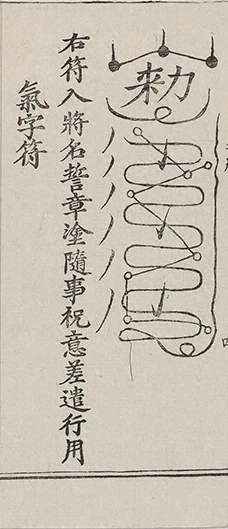 勑
右符入將名誓章塗隨事祝意差遣行用
氣字符